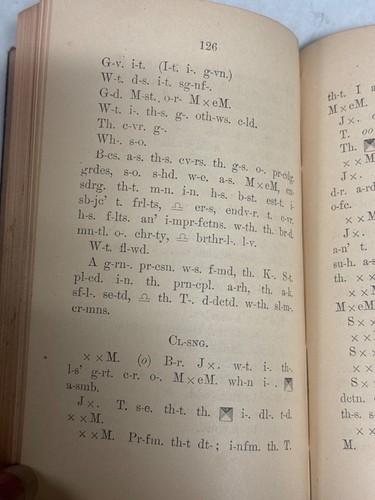 126
G-v. i-t. (I-t. i-. g-vn.)
W-t. d-s. i-t. sg-nf-.
G-d. M-st. o-r- M×eM.
W-t. i-. th-s. g-. oth-ws. c-ld.
Th. c-vr. g-.
Wh-. s-o.
B-cs. a-s. th-s. cv-rs. th. g-s. o-. pr-cdg.
grdes, s-o. s-hd. w-e. a-s. M×eM,
sdrg. th-t. m-n. i-n. h-s. b-st. est-t. i-
sb-jc' t. frl-ts, ♎ er-s, endv-r. t. c-vr.
h-s. f-lts. an' i-mpr-fctns. w-th. th. br-d
mn-tl. o-. chr-ty, ♎ brthr-l-. l-v.
W-t. fl-wd.
A g-rn-. pr-csn. w-s. f-md, th. K-. S-t.
pl-cd. i-n. th. prn-cpl. a-rh, th. a-k.
sf-l-. se-td, ♎ th. T-. d-dctd. w-th. sl-m-.
cr-mns.
CL-SNG.
××M. (o) B-r. J×. w-t. i-. th-.
l-s' g-rt. c-r. o-. M×eM. wh-n i-.
a-smb.
J×. T. s-e. th-t. th. i-. dl-. t-d.
××M.
××M. Pr-fm. th-t dt-; i-nfm. th. T.
th-t. I a
M×eM.
J×.
T. oo
Th.
××M
J×.
d-r. a-rd
o-fc.
××M
J×.
a-n' t.
su-h. a-s
th. ××
××M
M×eM
S×
××M
S×
××M
dctn.
th-s. s-
××M
M.